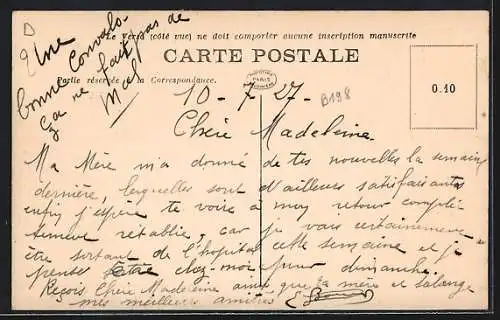 D
Une
bonne convalo.
ça ne fait pas de
Mal
Le Verso (côté vue) ne doit comporter aucune inscription manuscrite
CARTE POSTALE
Partie réservée à la Correspondance.
PARIS
0.10
10-7-27-
B198
Chère Madeleine.
Ma Mère m'a donné de tes nouvelles la semaine
dernière, lesquelles sont d'ailleurs satisfaisantes
enfin j'espère te voire à mon retour complè-
tement rétablie, car je vais certainement
être sortant de l'hopital cette semaine et je
pense être chez-moi pour dimanche.
Reçois Chère Madeleine ainsi que ta mère et Solange
mes meilleurs amitiés